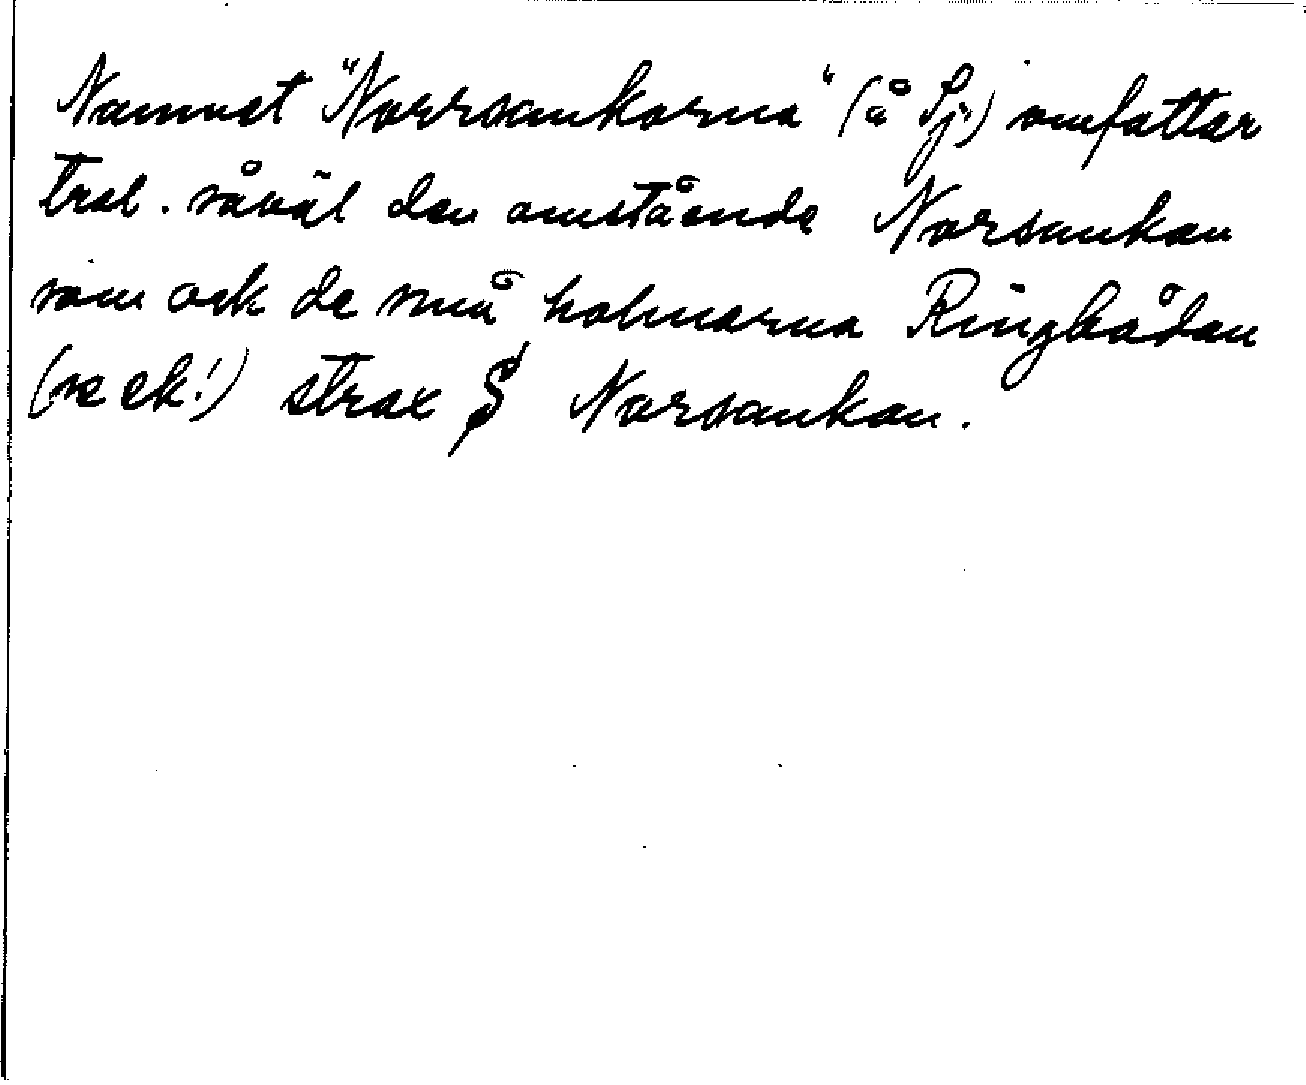 Namnet "Norrsankorna" (å Sj.) omfattar
trol. såväl den omstående Norsankan
som ock de små holmarna Ringbådan
(se ek!) strax S Norsankan.